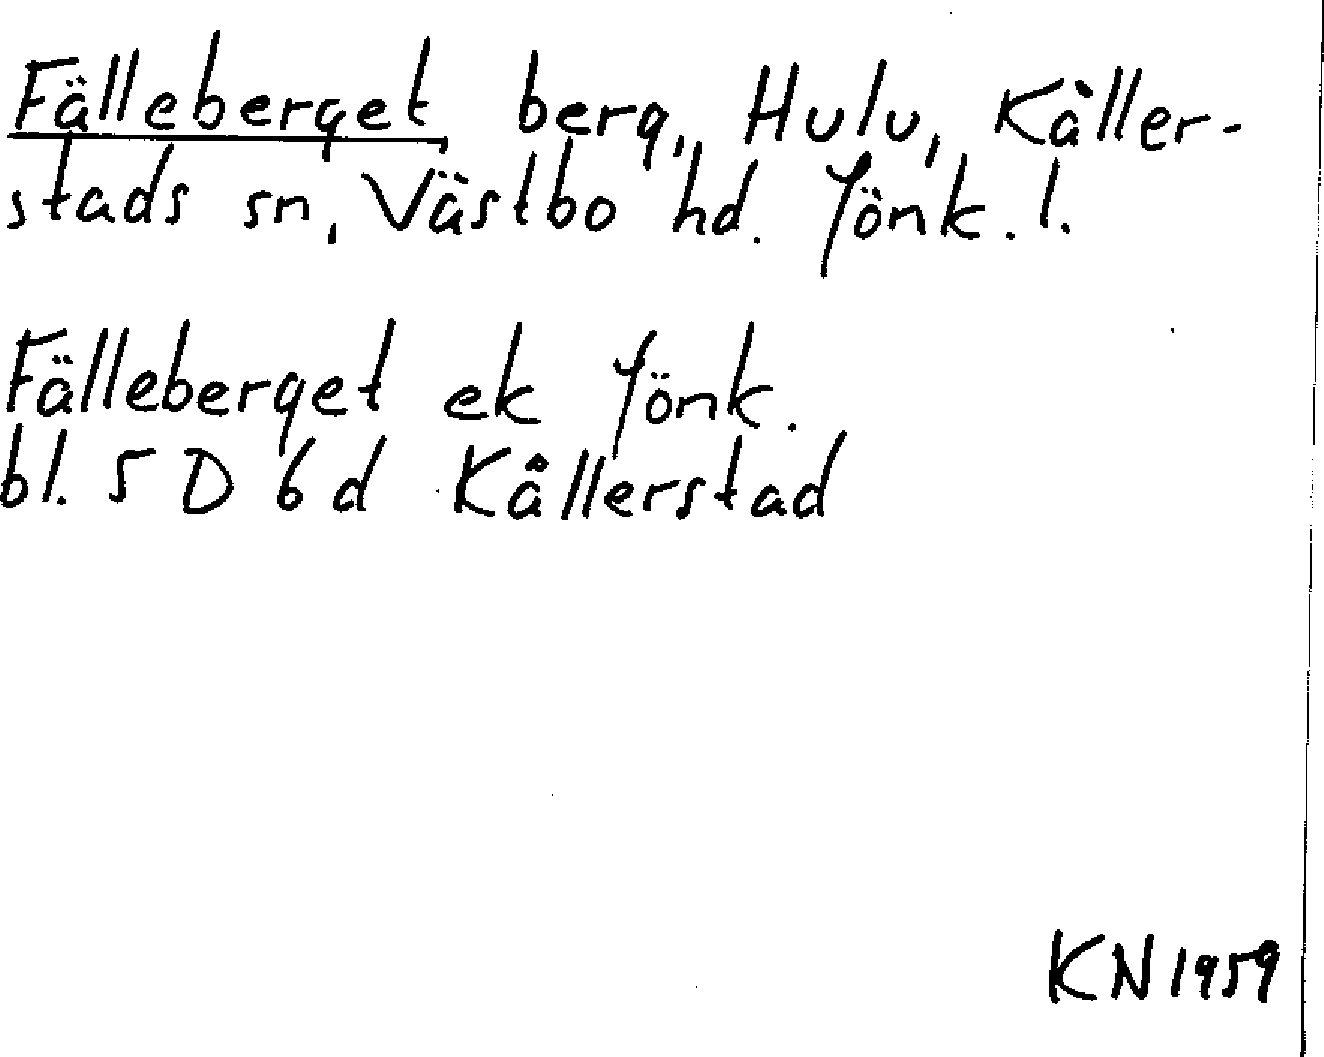 Fälleberget, berg, Hulu, Kåller-
stads sn, Västbo hd. Jönk. l.
Fälleberget ek Jönk.
bl. 5 D 6 d Kållerstad
KN 1959